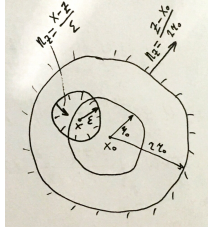 n_z = \frac{x-z}{ε}
\frac{z-x_0}{2r_0}
x
ε
x_0
r_0
2r_0